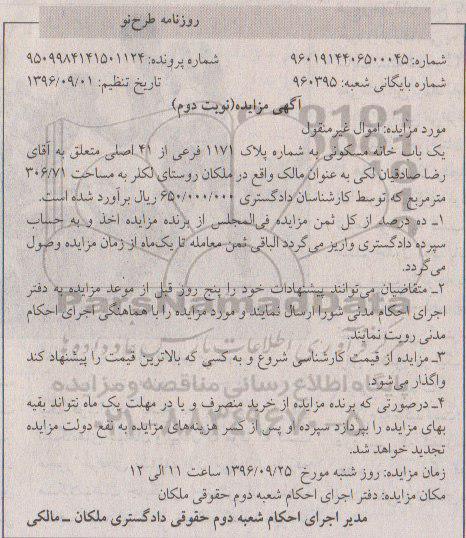 روزنامه طرح‌نو
شماره: ۹۶۰۱۹۱۴۴۰۶۵۰۰۰۴۵ شماره پرونده: ۹۵۰۹۹۸۴۱۴۱۵۰۱۱۲۴
شماره بایگانی شعبه: ۹۶۰۳۹۵ تاریخ تنظیم: ۱۳۹۶/۰۹/۰۱
آگهی مزایده(نوبت دوم)
مورد مزایده: اموال غیرمنقول
یک باب خانه مسکونی به شماره پلاک ۱۱۷۱ فرعی از ۴۱ اصلی متعلق به آقای
رضا صادقیان لکی به عنوان مالک واقع در ملکان روستای لکلر به مساحت ۳۰۶/۷۱
مترمربع که توسط کارشناسان دادگستری ۶۵۰/۰۰۰/۰۰۰ ریال برآورد شده است.
۱ـ ده درصد از کل ثمن مزایده فی‌المجلس از برنده مزایده اخذ و به حساب
سپرده دادگستری واریز می‌گردد الباقی ثمن معامله تا یک‌ماه از زمان مزایده وصول
می‌گردد.
۲ـ متقاضیان می‌توانند پیشنهادات خود را پنج روز قبل از موعد مزایده به دفتر
اجرای احکام مدنی شورا ارسال نمایند و مورد مزایده را با هماهنگی اجرای احکام
مدنی رویت نمایند.
۳ـ مزایده از قیمت کارشناسی شروع و به کسی که بالاترین قیمت را پیشنهاد کند
واگذار می‌شود.
۴ـ درصورتی که برنده مزایده از خرید منصرف و یا در مهلت یک ماه نتواند بقیه
بهای مزایده را بپردازد سپرده او پس از کسر هزینه‌های مزایده به نفع دولت مزایده
تجدید خواهد شد.
زمان مزایده: روز شنبه مورخ ۱۳۹۶/۰۹/۲۵ ساعت ۱۱ الی ۱۲
مکان مزایده: دفتر اجرای احکام شعبه دوم حقوقی ملکان
مدیر اجرای احکام شعبه دوم حقوقی دادگستری ملکان ــ مالکی
ParsNamadData
پایگاه اطلاع رسانی مناقصه و مزایده